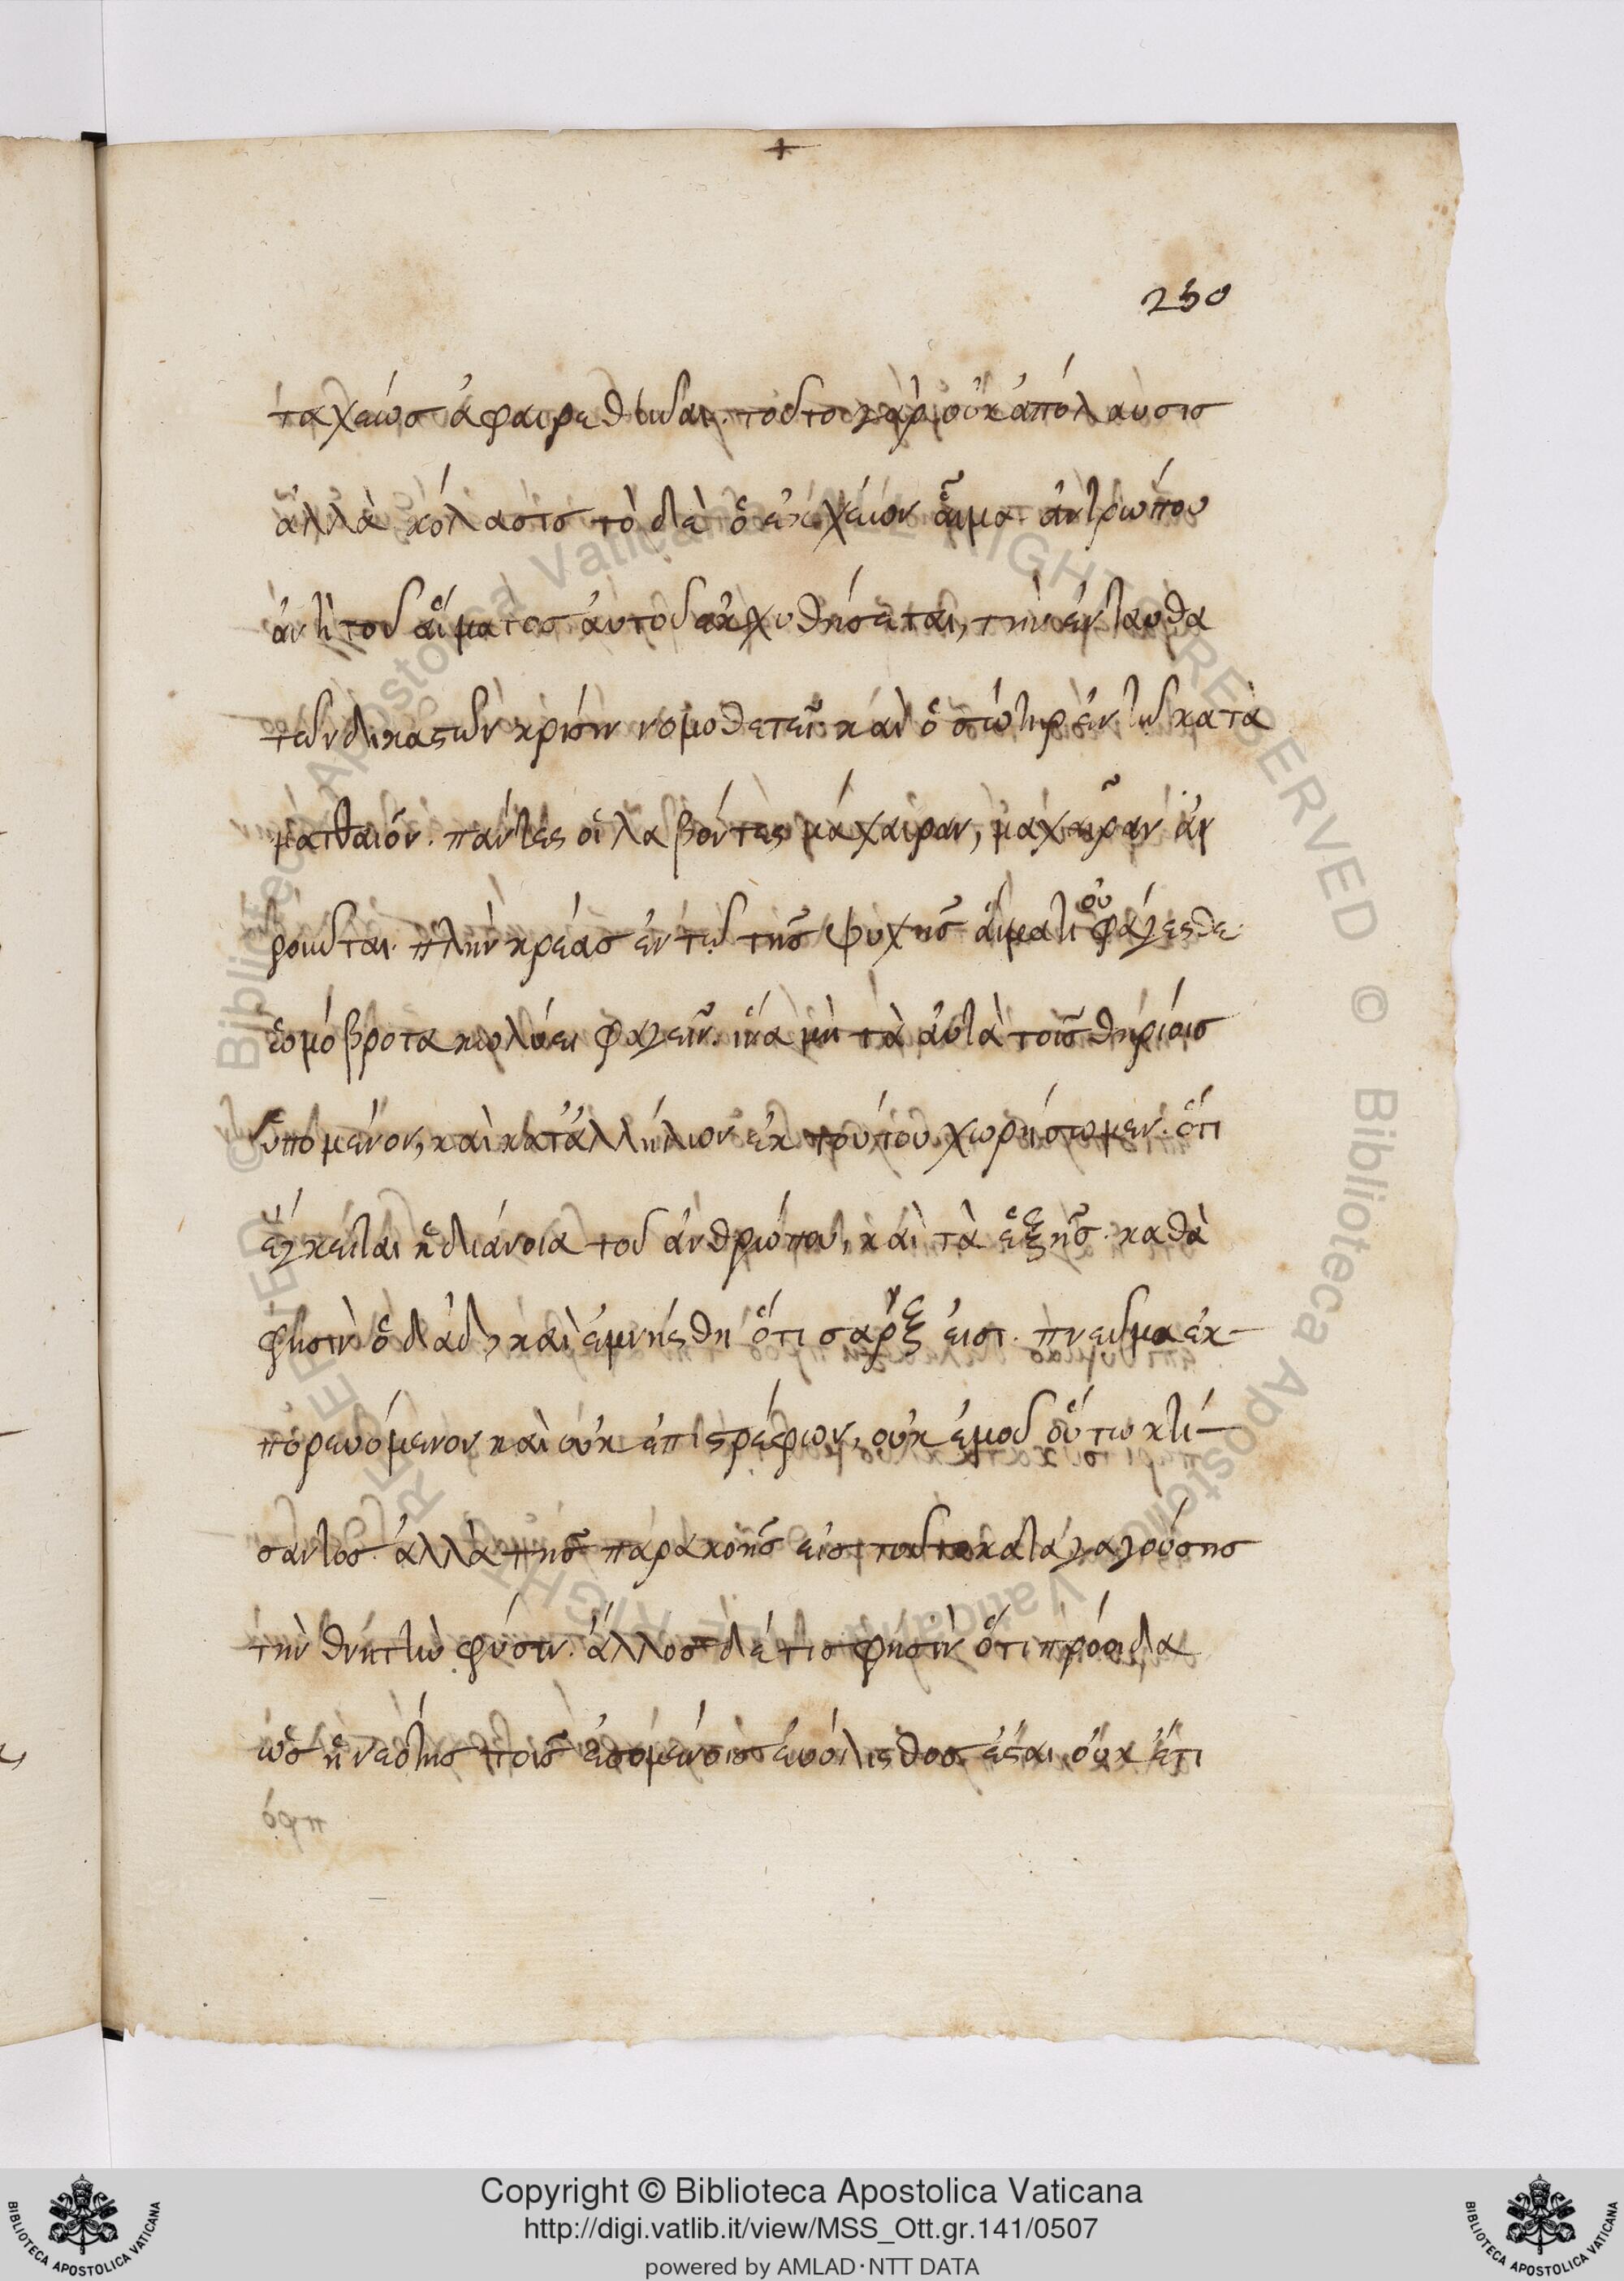 +
250
ταχέως ἀφαιρεθῆναι. τοῦτο γὰρ οὐκ ἀπόλαυσις
ἀλλὰ κόλασις τὸ δὲ ὁ ἐκχέων αἷμα ἀνθρώπου
ἀντὶ τοῦ αἵματος αὐτοῦ ἐκχυθήσεται, τὴν ἐνταῦθα
τῶν δικαστῶν κρίσιν νομοθετεῖ καὶ ὁ σωτὴρ ἐν τῷ κατὰ
ματθαῖον. πάντες οἱ λαβόντες μάχαιραν, μαχαῖραν ἀν
ροῦνται. πλὴν κρέας ἐν τῷ τῆς ψυχῆς αἵματι οὐ φάγεσθε
ὁμόβροτα κωλύει φαγεῖν. ἵνα μὴ τὰ αὐτὰ τοῖς θηρίοις
ὑπομένον, καὶ κατ' ἀλλήλων ἐκ τούτου χωρήσωμεν. ὅτι
ἔγκειται ἡ διάνοια τοῦ ἀνθρώπου, καὶ τὰ ἑξῆς. καθὰ
φησὶν ὁ δαδ, καὶ ἐμνήσθη ὅτι σάρξ εἰσι. πνεῦμα ἐκ-
πορευόμενον καὶ οὐκ ἐπιστρέφων, οὐκ ἐμοῦ οὕτω κτί-
σαντος. ἀλλὰ τῆς παρακοῆς εἰς τοῦτο καταγαγούσης
τὴν θνητὴν φύσιν. ἄλλος δέ τις φησὶν ὅτι πρόοιδα
ὡς ἡ νεότης τοῖς ἐσομένοις εὐόλισθος ἔσται οὐκ ἔτι
Copyright © Biblioteca Apostolica Vaticana
http://digi.vatlib.it/view/MSS_Ott.gr.141/0507
powered by AMLAD·NTT DATA